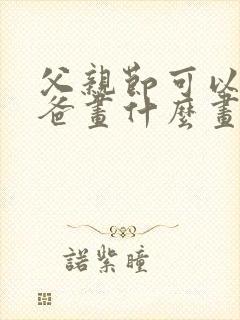 父親節可以
爸畫什麼畫
諾紫瞳